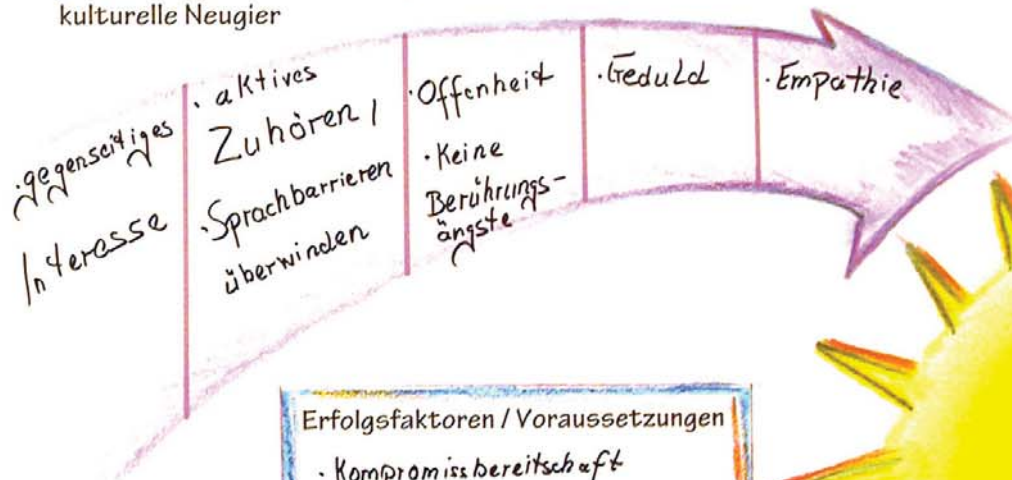 kulturelle Neugier
· gegenseitiges
Interesse
· aktives
Zuhören /
· Sprachbarrieren
überwinden
· Offenheit
· Keine
Berührungs-
ängste
· Geduld
· Empathie
Erfolgsfaktoren / Voraussetzungen
· Kompromissbereitschaft